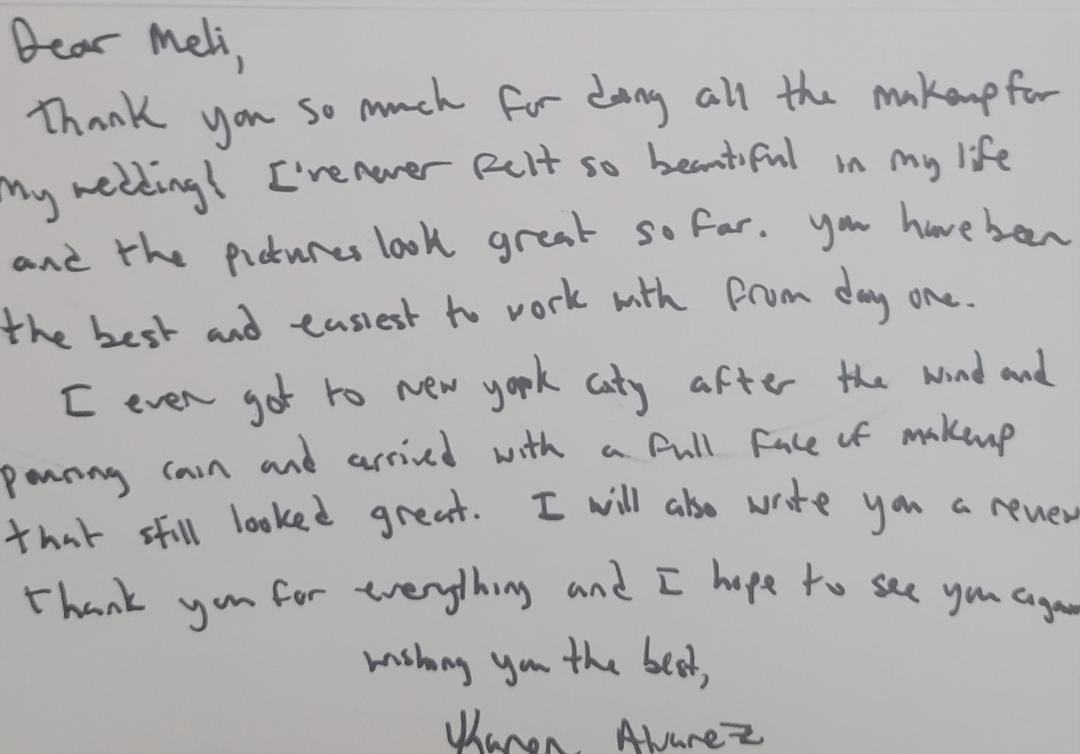 Dear Meli,
Thank you so much for doing all the makeup for
my wedding! I've never felt so beautiful in my life
and the pictures look great so far. you have been
the best and easiest to work with from day one.
I even got to New york city after the wind and
pouring rain and arrived with a full face of makeup
that still looked great. I will also write you a review
thank you for everything and I hope to see you again
wishing you the best,
Karen Alvarez